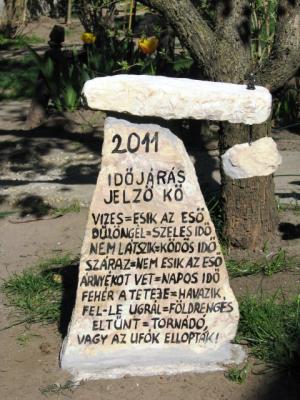 2011
IDŐJÁRÁS
JELZŐ KŐ
VIZES=ESIK AZ ESŐ,
DÜLÖNGÉL=SZELES IDŐ
NEM LÁTSZIK=KÖDÖS IDŐ
SZÁRAZ=NEM ESIK AZ ESŐ
ÁRNYÉKOT VET=NAPOS IDŐ
FEHÉR A TETEJE=HAVAZIK,
FEL-LE UGRÁL=FÖLDRENGÉS
ELTŰNT=TORNÁDÓ,
VAGY AZ UFÓK ELLOPTÁK!